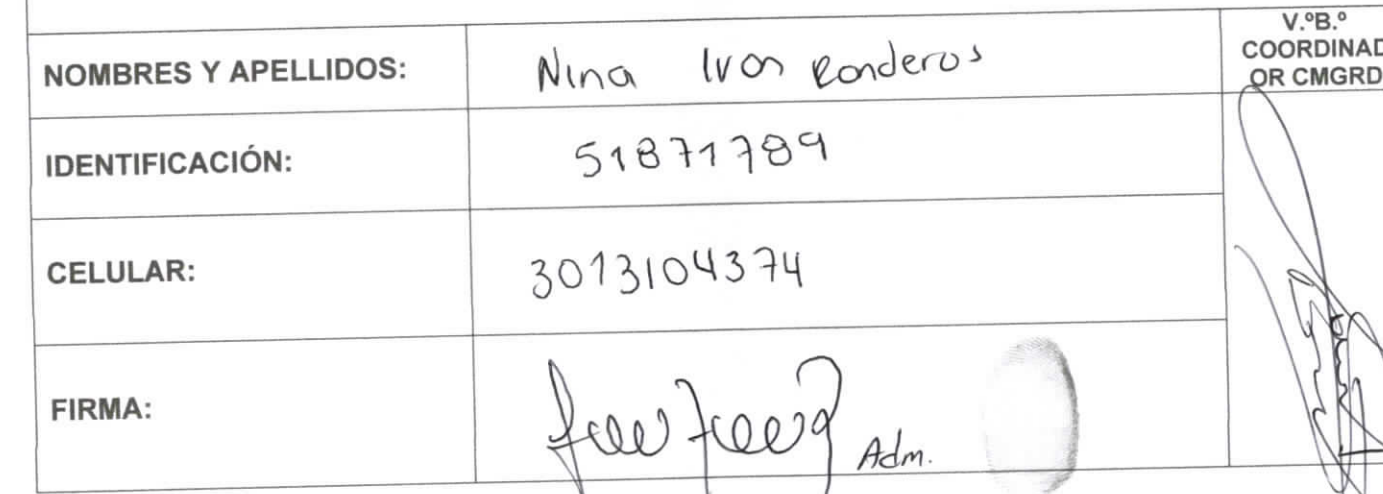 NOMBRES Y APELLIDOS: Nina Ivon Ronderos
V.ºB.º
COORDINAD
OR CMGRD
IDENTIFICACIÓN: 51871789
CELULAR: 3013104374
FIRMA: Adm.